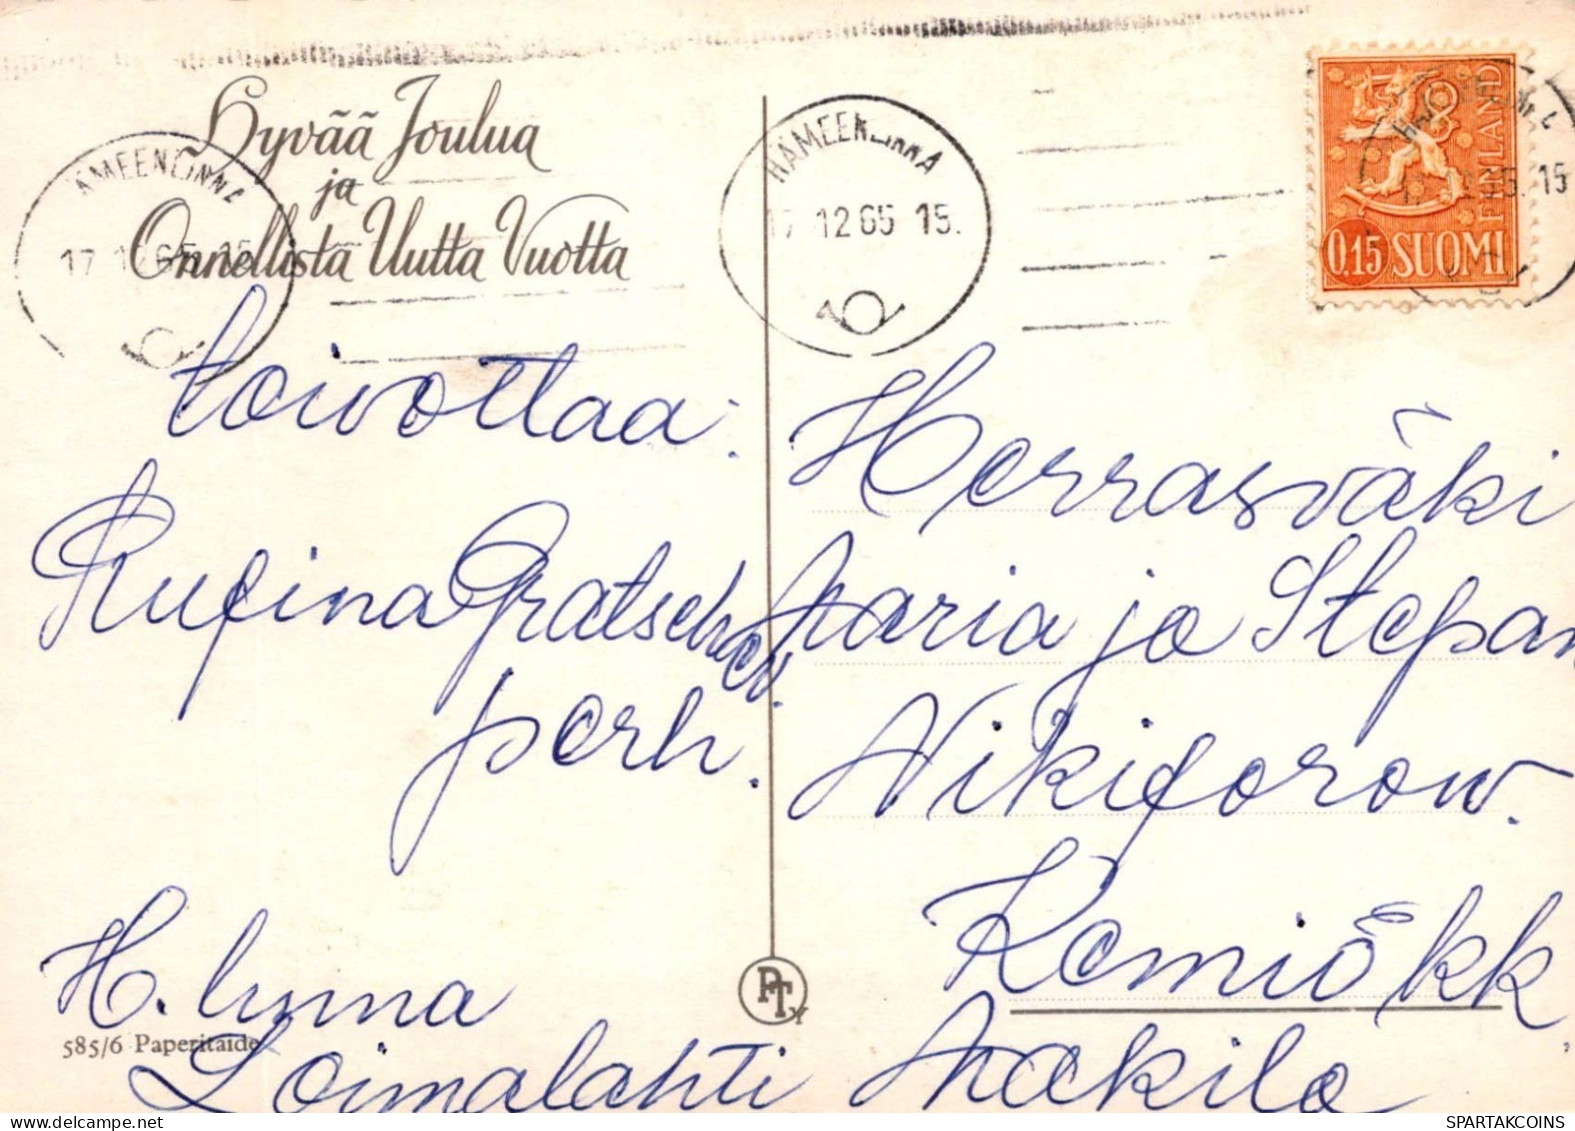 Hyvää Joulua
ja
Onnellista Uutta Vuotta
toivottaa:
Rufina Gratschew
perh.
H. linna
Loimalahti
585/6 Paperitaide
PTY
HÄMEENLINNA
17 12 65 15
HÄMEENLINNA
17 12 65 15.
FINLAND
0.15 SUOMI
15. 15
Herrasväki
Maria ja Stepan
Nikiforow.
Kemiö kk.
Makila
SPARTAKCOINS